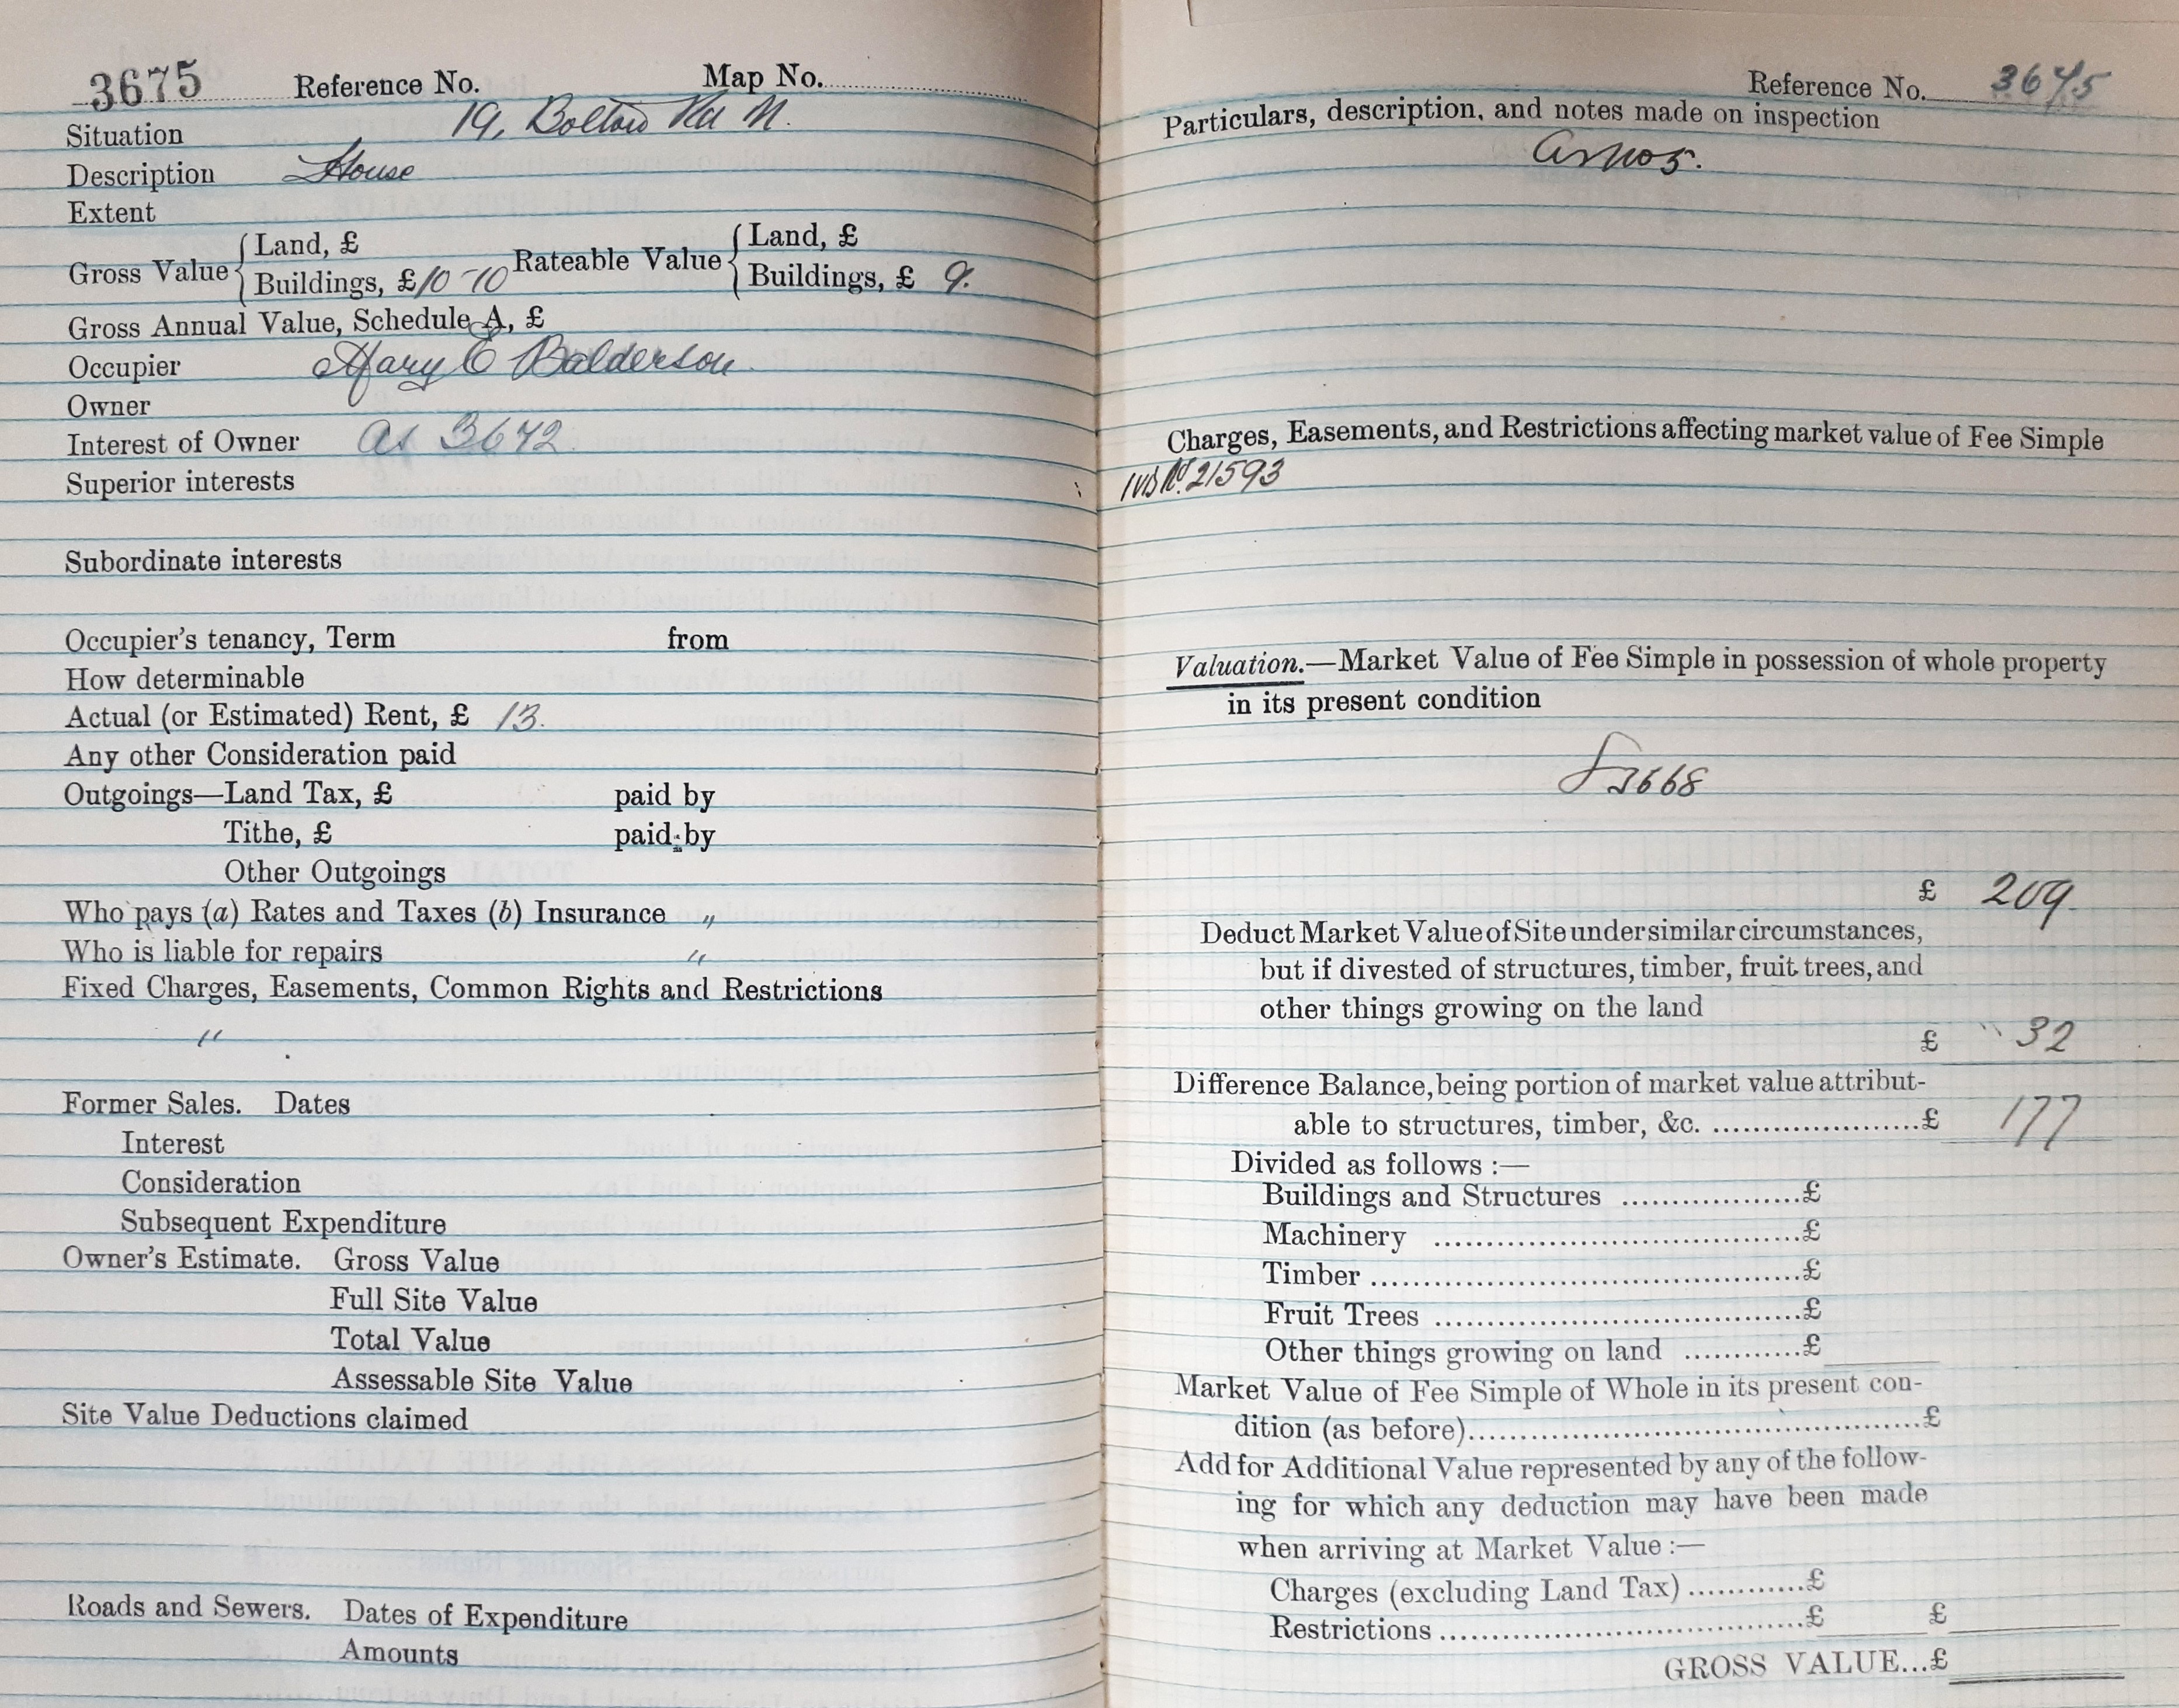 3675 Reference No. Map No.
Situation 19, Bolton Rd N.
Description House
Extent
Gross Value { Land, £ Rateable Value { Land, £
Buildings, £ 10-10 Buildings, £ 9.
Gross Annual Value, Schedule A, £
Occupier Mary E Balderson
Owner
Interest of Owner as 3672
Superior interests
Subordinate interests
Occupier's tenancy, Term from
How determinable
Actual (or Estimated) Rent, £ 13.
Any other Consideration paid
Outgoings—Land Tax, £ paid by
Tithe, £ paid by
Other Outgoings
Who pays (a) Rates and Taxes (b) Insurance "
Who is liable for repairs "
Fixed Charges, Easements, Common Rights and Restrictions
"
Former Sales. Dates
Interest
Consideration
Subsequent Expenditure
Owner's Estimate. Gross Value
Full Site Value
Total Value
Assessable Site Value
Site Value Deductions claimed
Roads and Sewers. Dates of Expenditure
Amounts
Reference No. 3675
Particulars, description, and notes made on inspection
as no 5.
Charges, Easements, and Restrictions affecting market value of Fee Simple
No. 21593
Valuation.—Market Value of Fee Simple in possession of whole property
in its present condition
3668
£ 209.
Deduct Market Value of Site under similar circumstances,
but if divested of structures, timber, fruit trees, and
other things growing on the land
£ 32
Difference Balance, being portion of market value attribut-
able to structures, timber, &c. ....................£ 177
Divided as follows :—
Buildings and Structures ..................£
Machinery ..................£
Timber ..................£
Fruit Trees ..................£
Other things growing on land ............£
Market Value of Fee Simple of Whole in its present con-
dition (as before)..................£
Add for Additional Value represented by any of the follow-
ing for which any deduction may have been made
when arriving at Market Value :—
Charges (excluding Land Tax) ............£
Restrictions ..................£ £
GROSS VALUE...£